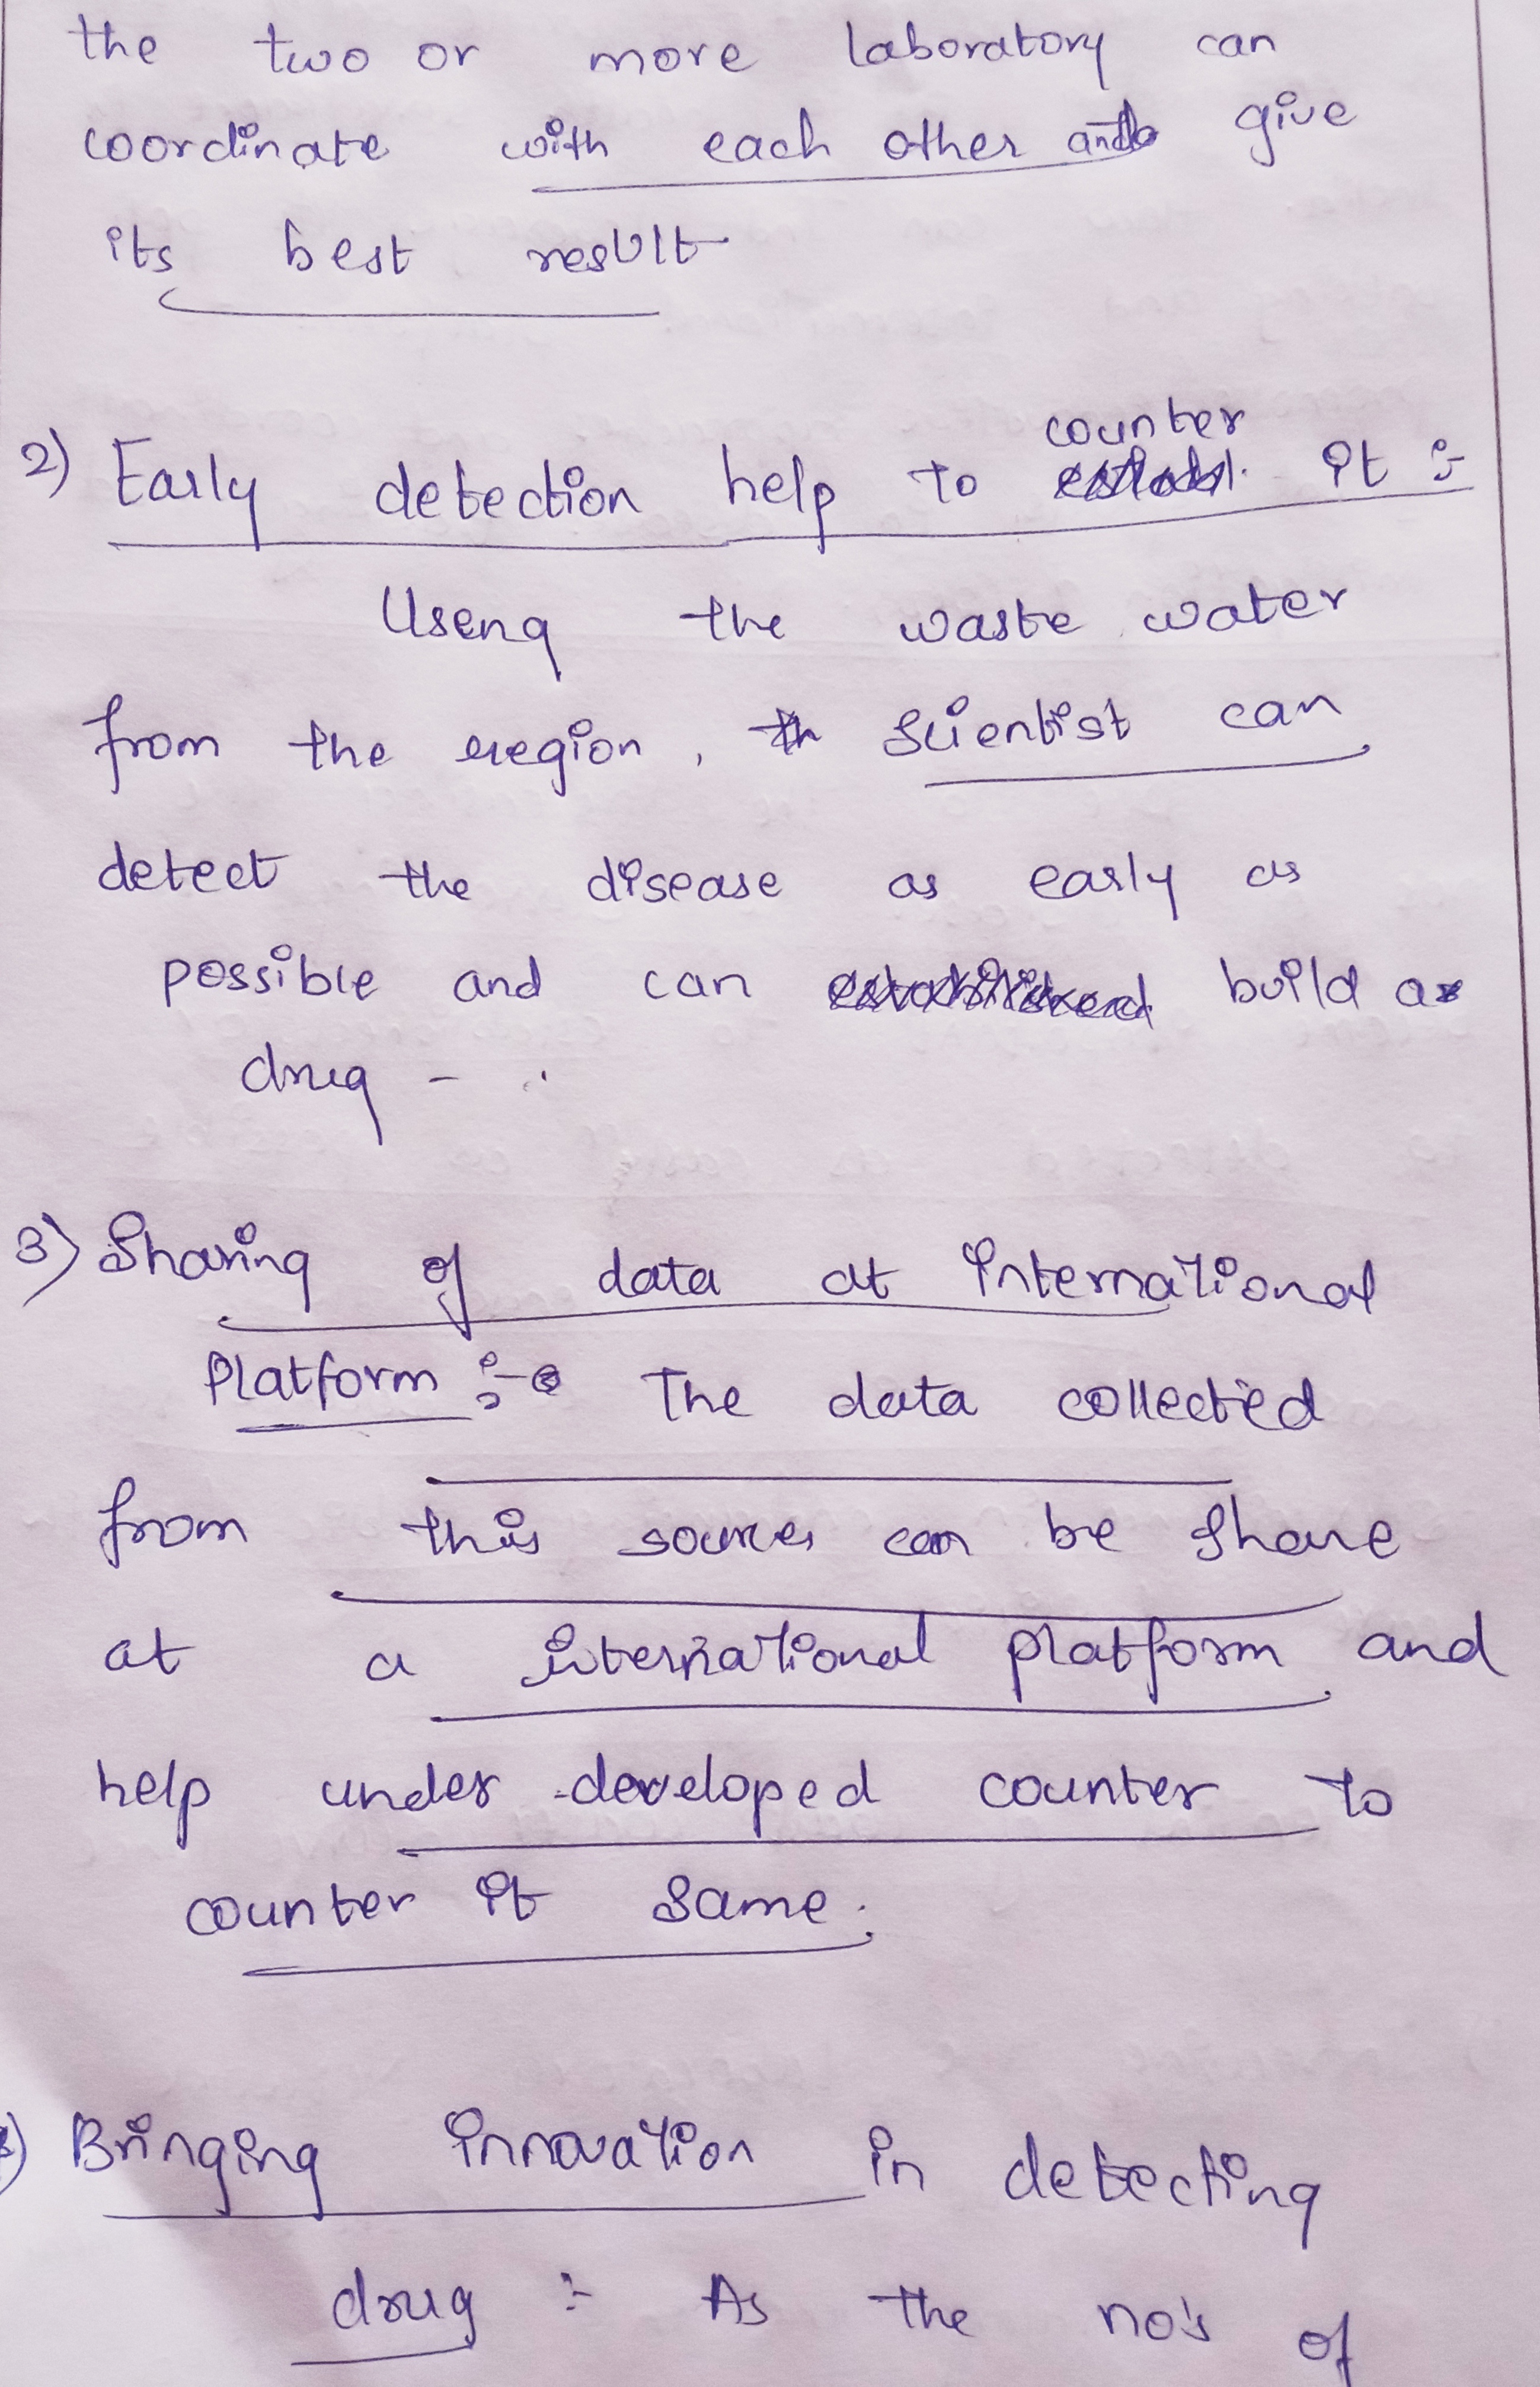 the two or more laboratory can
coordinate with each other and give
its best result
2) Early detection help to counter it :-
Useng the waste water
from the region, scientist can
detect the disease as early as
possible and can build a
drug -
3) Sharing of data at international
Platform :- The data collected
from this sources can be share
at a international platform and
help under-developed counter to
counter it same.
Bringing innovation in detecting
drug :- As the no's of